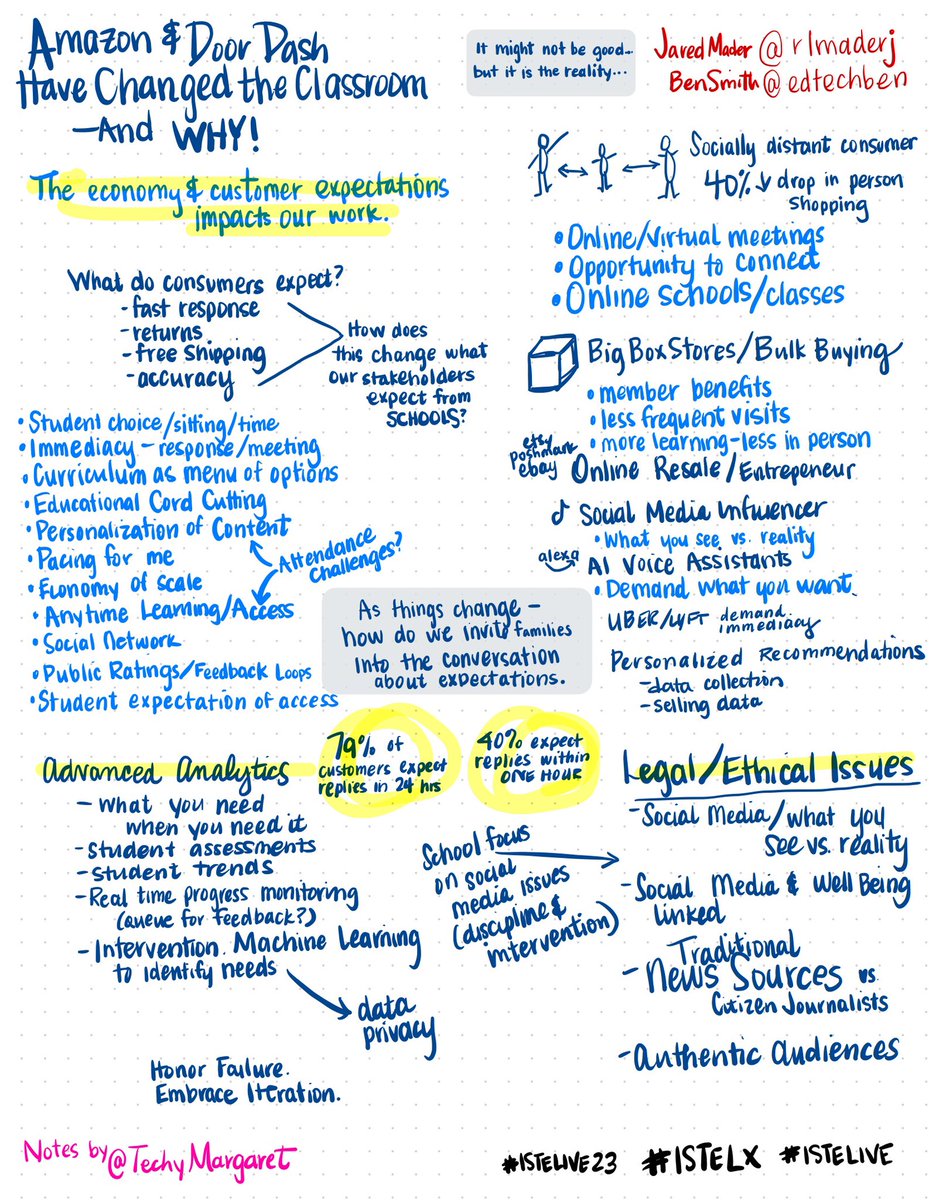 Amazon & Door Dash
Have Changed the Classroom
—And WHY!
It might not be good...
but it is the reality...
Jared Mader @rlmaderj
Ben Smith @edtechben
The economy & customer expectations
impacts our work.
What do consumers expect?
- fast response
- returns
- free shipping
- accuracy
How does
this change what
our stakeholders
expect from
SCHOOLS?
• Student choice/sitting/time
• Immediacy - response/meeting
• Curriculum as menu of options
• Educational Cord Cutting
• Personalization of Content
• Pacing for me
• Economy of Scale
• Anytime Learning/Access
• Social Network
• Public Ratings/Feedback Loops
• Student expectation of access
Attendance
Challenges?
Socially distant consumer
40% ↓ drop in person
Shopping
• Online/Virtual meetings
• Opportunity to connect
• Online Schools/classes
Big Box Stores/Bulk Buying
• member benefits
• less frequent visits
• more learning-less in person
etsy
poshmark
ebay
Online Resale/Entrepeneur
Social Media Influencer
• What you see vs. reality
alexa
AI Voice Assistants
• Demand what you want
UBER/LYFT demand
immediacy
Personalized Recommendations
- data collection
- selling data
As things change -
how do we invite families
into the conversation
about expectations.
79% of
customers expect
replies in 24 hrs
40% expect
replies within
ONE HOUR
Advanced Analytics
- What you need
when you need it
- Student assessments
- Student trends
- Real time progress monitoring
(queue for feedback?)
- Intervention. Machine Learning
to identify needs
data
privacy
School focus
on social
media issues
(discipline &
intervention)
Legal/Ethical Issues
- Social Media/what you
see vs. reality
- Social Media & Well Being
linked
- Traditional
News Sources vs.
Citizen Journalists
- Authentic Audiences
Honor Failure.
Embrace Iteration.
Notes by @TechyMargaret
#ISTELIVE23 #ISTELX #ISTELIVE